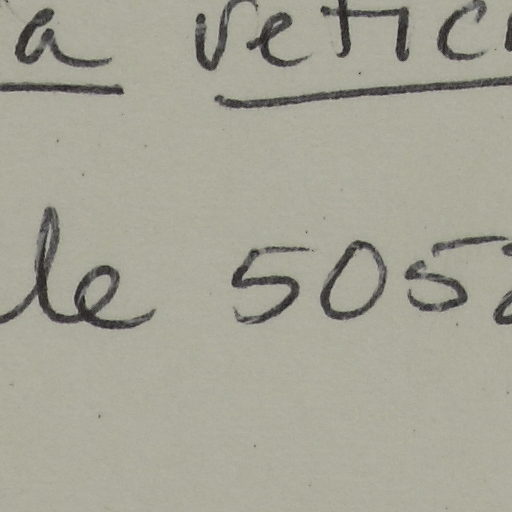 a retic
le 505